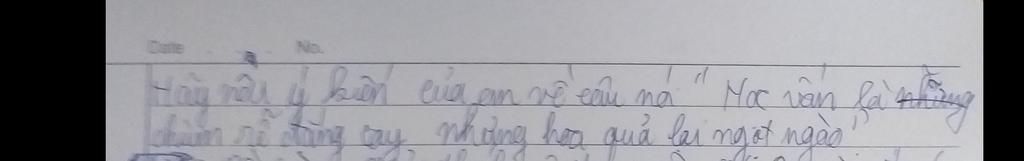 Date No.
Hãy nêu ý kiến của em về câu nói "Học vấn là những
chùm rễ đắng cay, nhưng hoa quả lại ngọt ngào"